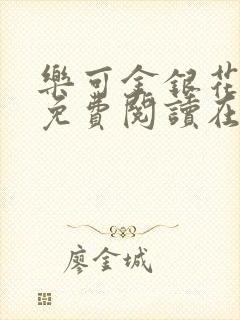 樂可金銀花
免費閱讀在
廖金城